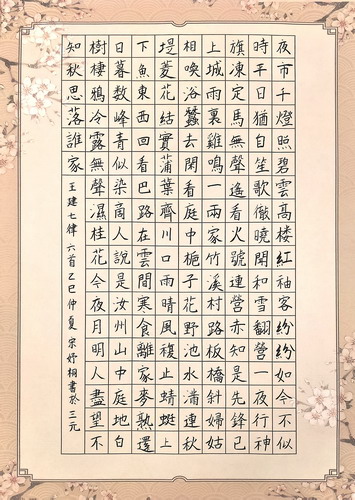 夜市千燈照碧雲高楼紅袖客紛紛如今不似
時平日猶自笙歌徹曉聞和雪翻營一夜行神
旗凍定馬無聲遙看火號連營亦知是先鋒已
上城雨裏雞鳴一兩家竹溪村路板橋斜婦姑
相喚浴蠶去閑看庭中梔子花野池水滿連秋
堤菱花結實蒲葉齊川口雨晴風複止蜻蜓上
下魚東西回看巴路在雲間寒食離家麥熟還
日暮數峰青似染商人說是汝州山中庭地白
樹棲鴉冷露無聲濕桂花今夜月明人盡望不
知秋思落誰家
王建七律六首乙巳仲夏宋妤桐書於三元